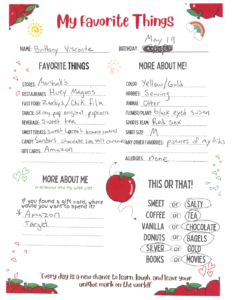 My Favorite Things
NAME: Brittany Visconte BIRTHDAY: May 19
FAVORITE THINGS
MORE ABOUT ME!
STORES: Marshall's
COLOR: Yellow/Gold
RESTAURANTS: Huey Magoos
HOBBIES: Sewing
FAST FOOD: Zaxbys/Chik fila
ANIMAL: Otter
SNACK: skinny pop original popcorn
FLOWER/PLANT: black eyed susan
BEVERAGE: Sweet tea
SPORTS TEAM: Red Sox
SWEET TREATS:
SHIRT SIZE: M
CANDY: Sanders chocolate sea salt caramels
ANY OTHER FAVORITES: pictures of my kids
GIFT CARDS: Amazon
ALLERGIES: None
MORE ABOUT ME
THIS OR THAT!
If you found a gift card, where would you want to spend it?
* Amazon
Target
SWEET or SALTY
COFFEE or TEA
VANILLA or CHOCOLATE
DONUTS or BAGELS
SILVER or GOLD
BOOKS or MOVIES
"Every day is a new chance to learn, laugh, and leave your
unique mark on the world!"